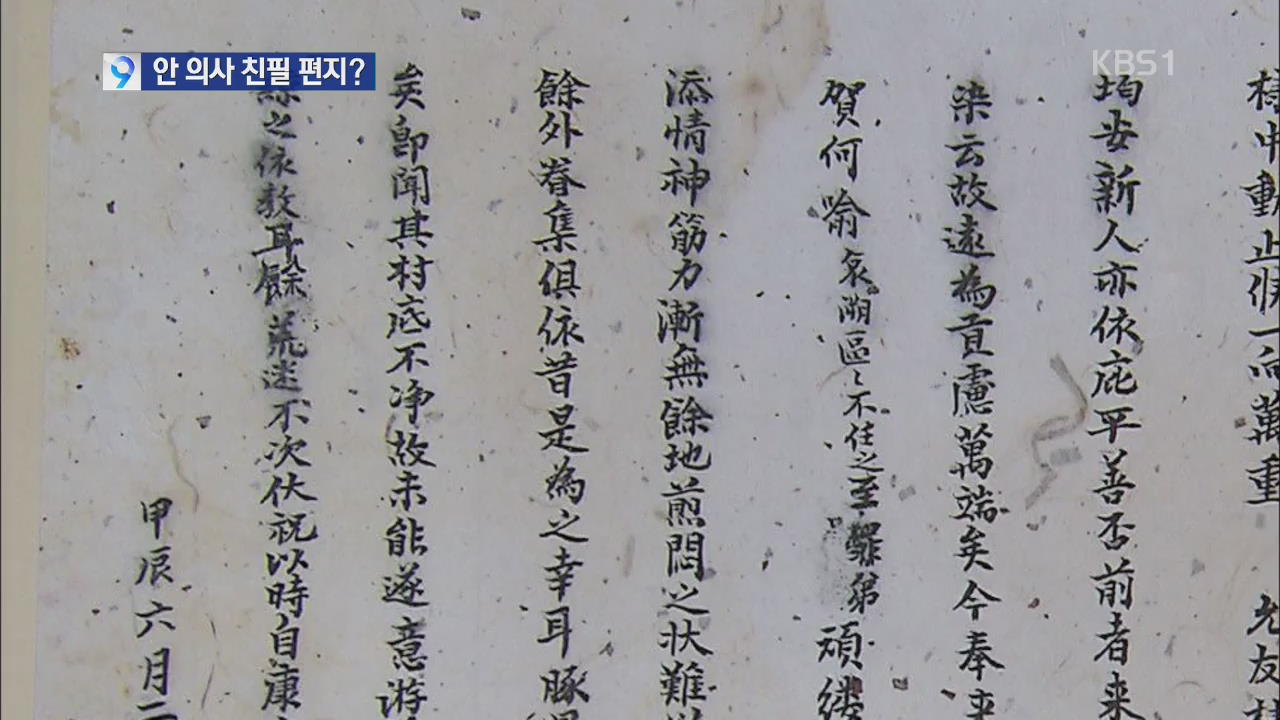 안 의사 친필 편지?
KBS1
中動止候一向萬重 允友
均安新人亦依庇平善否前者来
染云故遠為貢慮萬端矣今奉来
賀何喩哀溯區々不任之至罪弟頑縷
添情神筋力漸無餘地煎悶之状難
餘外眷集俱依昔是為之幸耳豚
矣即聞其村底不净故未能遂意游
之依教耳餘荒迷不次伏祝以時自康
甲辰六月二